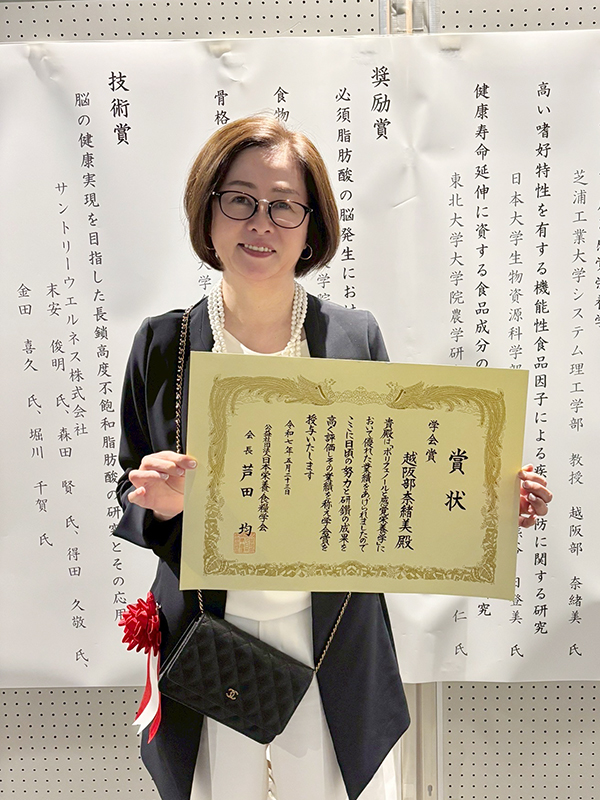 芝浦工業大学システム理工学部 教授 越阪部 奈緒美 氏
高い嗜好特性を有する機能性食品因子による疾
防に関する研究
日本大学生物資源科学部
登美 氏
健康寿命延伸に資する食品成分の
研究
東北大学大学院農学研
仁 氏
奨励賞
必須脂肪酸の脳発生にお
食物
骨格
技術賞
脳の健康実現を目指した長鎖高度不飽和脂肪酸の研究とその応用
サントリーウエルネス株式会社
末安 俊明 氏、森田 賢 氏、得田 久敬 氏、
金田 喜久 氏、堀川 千賀 氏
賞状
学会賞
越阪部奈緒美殿
貴殿は、ポリフェノールと感覚栄養学に
おいて優れた業績をあげられましたので
ここに日頃の努力と研鑽の成果を
高く評価しその業績を称え学会賞を
授与いたします
令和七年五月二十三日
公益社団法人日本栄養・食糧学会
会長 芦田 均